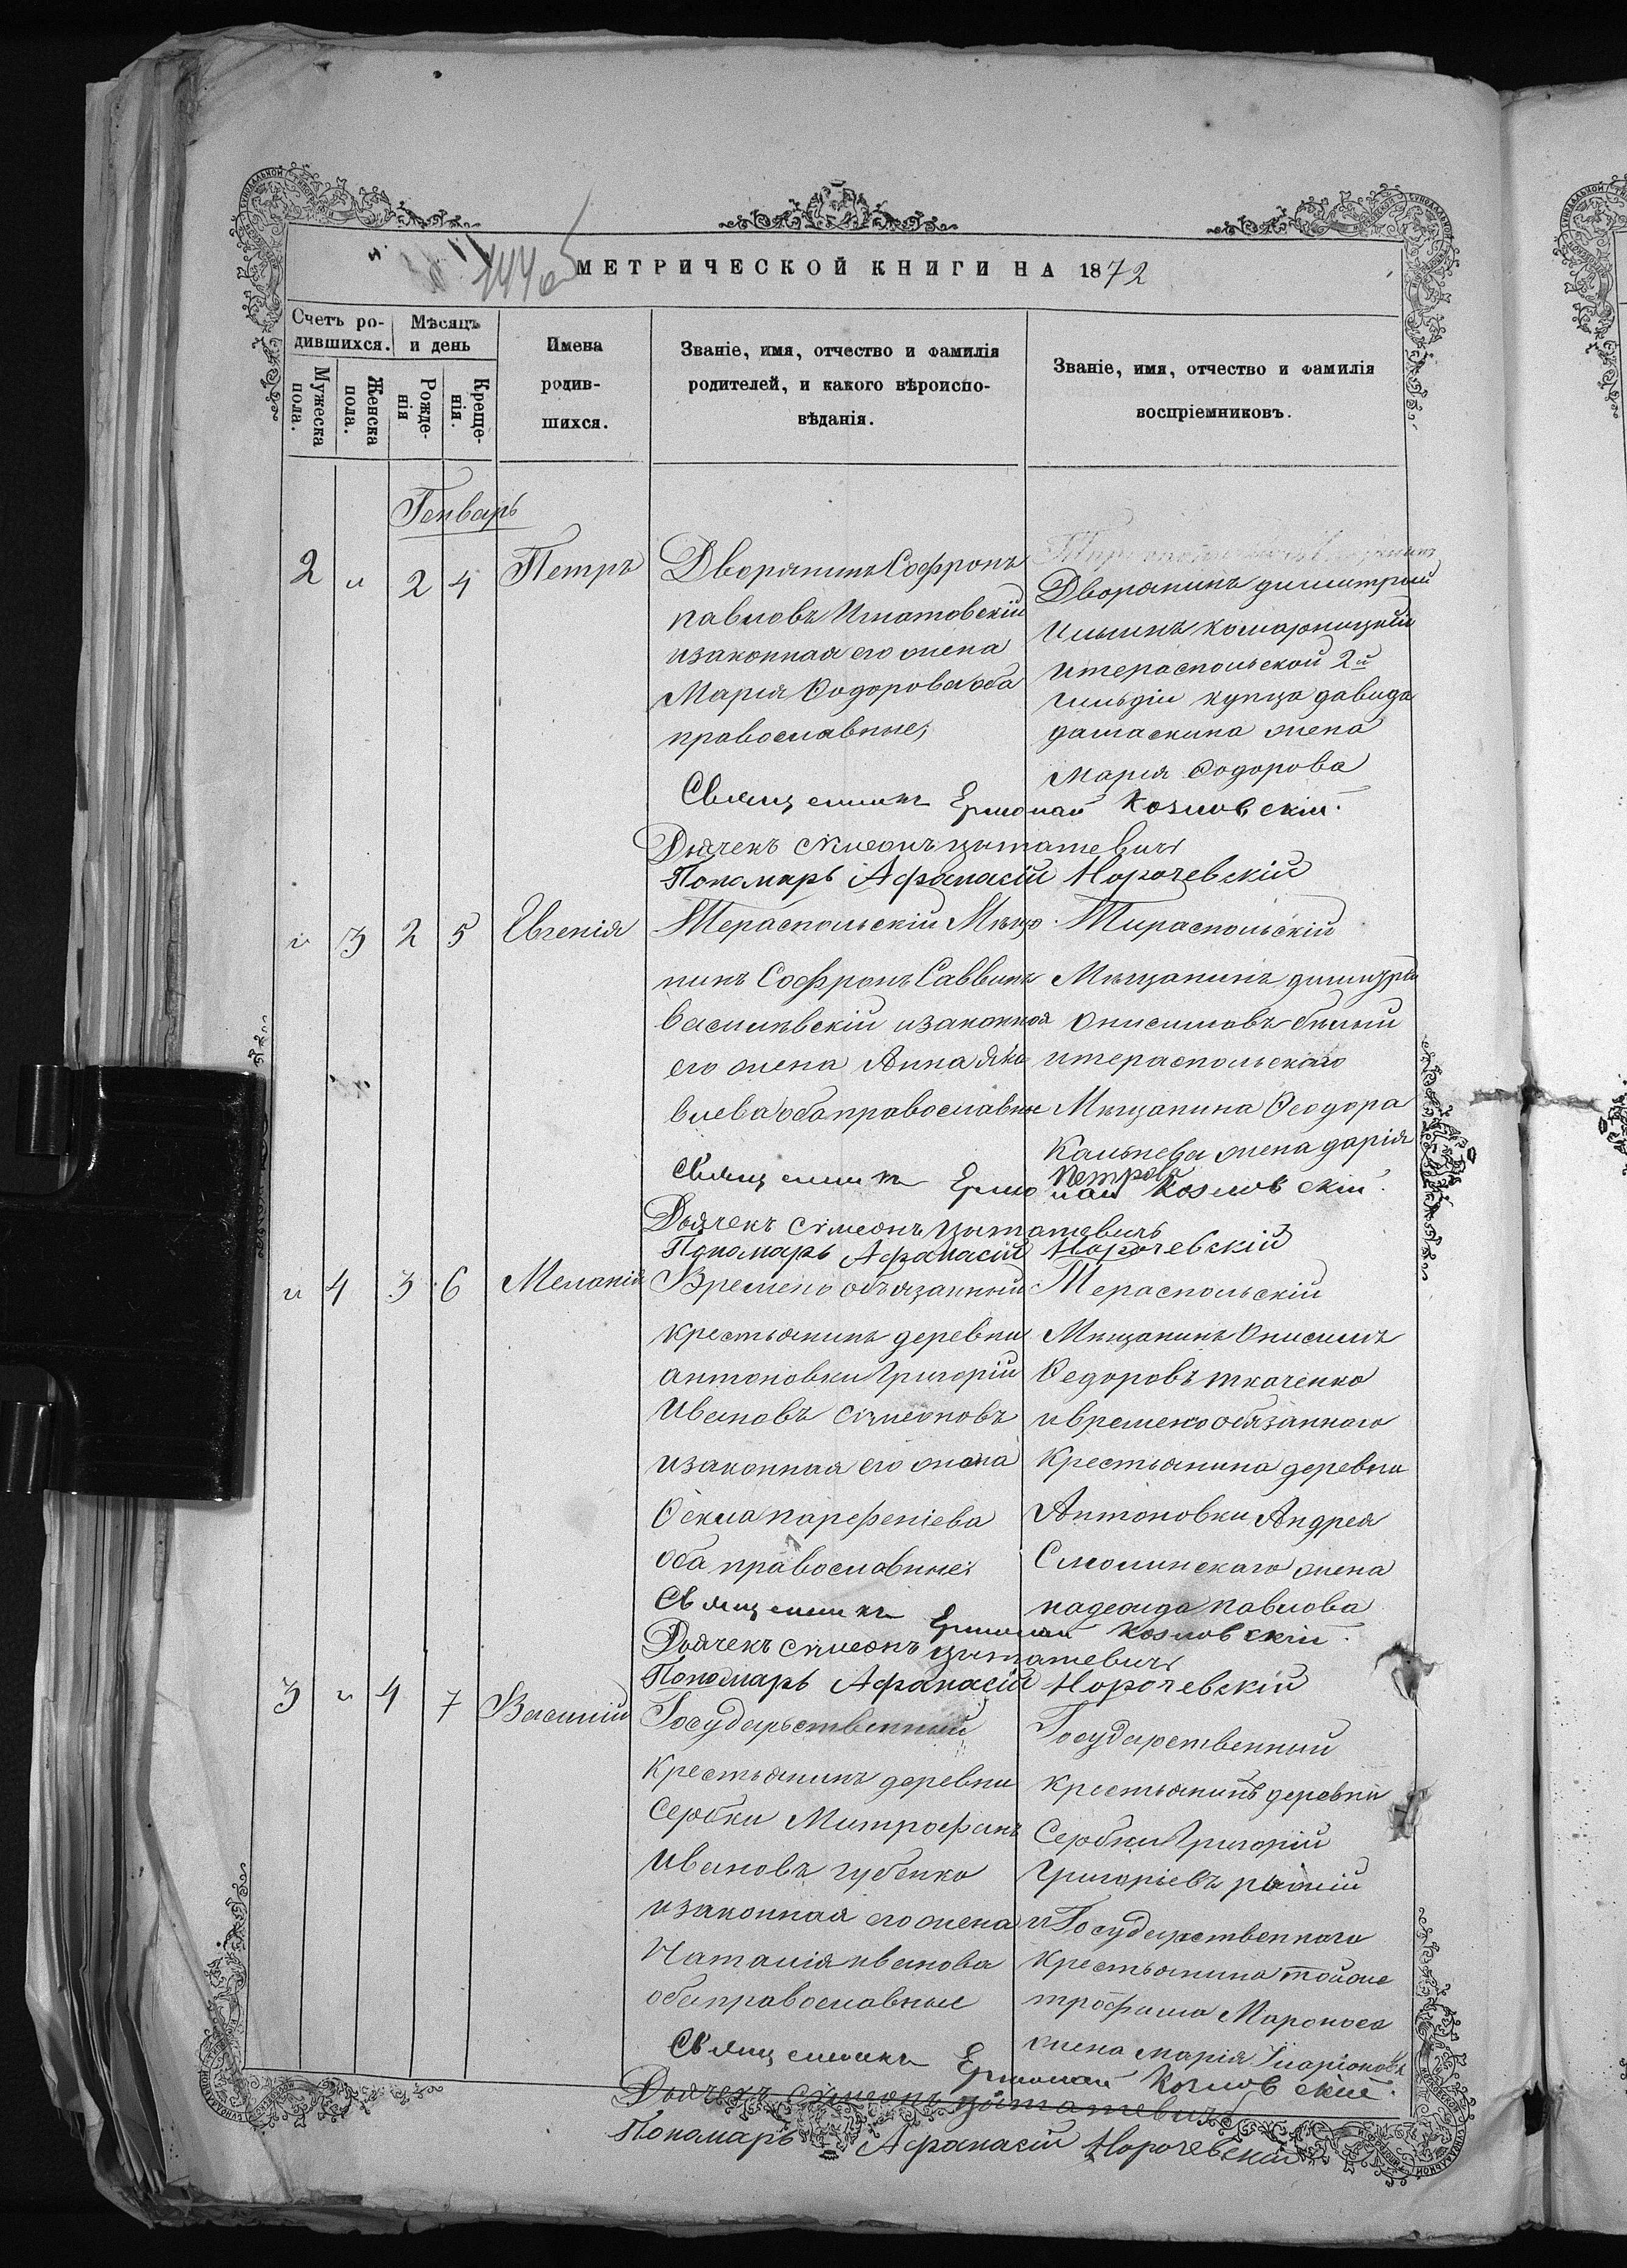 144об
МЕТРИЧЕСКОЙ КНИГИ НА 1872
Счетъ ро-
дившихся.
Мѣсяцъ
и день
Имена
родив-
шихся.
Званіе, имя, отчество и фамилія
родителей, и какого вѣроиспо-
вѣданія.
Званіе, имя, отчество и фамилія
воспріемниковъ.
Мужеска
пола.
Женска
пола.
Рожде-
нія
Креще-
нія.
Генварь
2 " 2 4 Петръ
Дворянинъ Софронъ
павловъ Игнатовскій
изаконная его жена
Марія Ѳодорова оба
православные,
Дворянинъ димитрій
Ильинъ комарницкій
итераспольской 2й
гильдіи купца давида
дамаскина жена
Марія Ѳодорова
Священникъ Ермолай Козловскій.
Дьячекъ Сѵмеонъ
Пономарь Афанасій Норочевскій
" 3 2 5 Евгенія
Тераспольскій Мѣща
нинъ Софронъ Саввинъ
Василевскій изаконная
его жена Анна Яко
влева оба православные
Тираспольскій
Мѣщанинъ димитрій
Онисимовъ бѣлый
итераспольскаго
Мѣщанина Ѳеодора
жена дарія
петрова
Священникъ Ермолай Козловскій.
Дьячекъ Сѵмеонъ
Пономарь Афанасій Норочевскій
" 4 3 6 Меланія
Временно обязанный
крестьянинъ деревни
антоновки Григорій
Ивановъ Сѵмеоновъ
изаконная его жена
Ѳекла парфеніева
оба православные,
Тераспольскій
Мѣщанинъ Онисимъ
Ѳедоровъ ткаченко
ивременообязаннаго
Крестьянина деревни
Антоновки Андрея
Смолинскаго жена
надежда павлова
Священникъ Ермолай Козловскій.
Дьячекъ Сѵмеонъ
Пономарь Афанасій Норочевскій
3 " 4 7 Василій
Государьственный
Крестьянинъ деревни
Сербки Митрофанъ
Ивановъ губенко
изаконная его жена
Наталія иванова
оба православные
Государственный
крестьянинъ деревни
Сербки Григорій
Григоріевъ рыжій
и Государственнаго
Крестьянина тойже
трофима
жена марія Іларіонова
Священникъ Ермолай Козловскій.
Дьячекъ Сѵмеонъ
Пономарь Афанасій Норочевскій